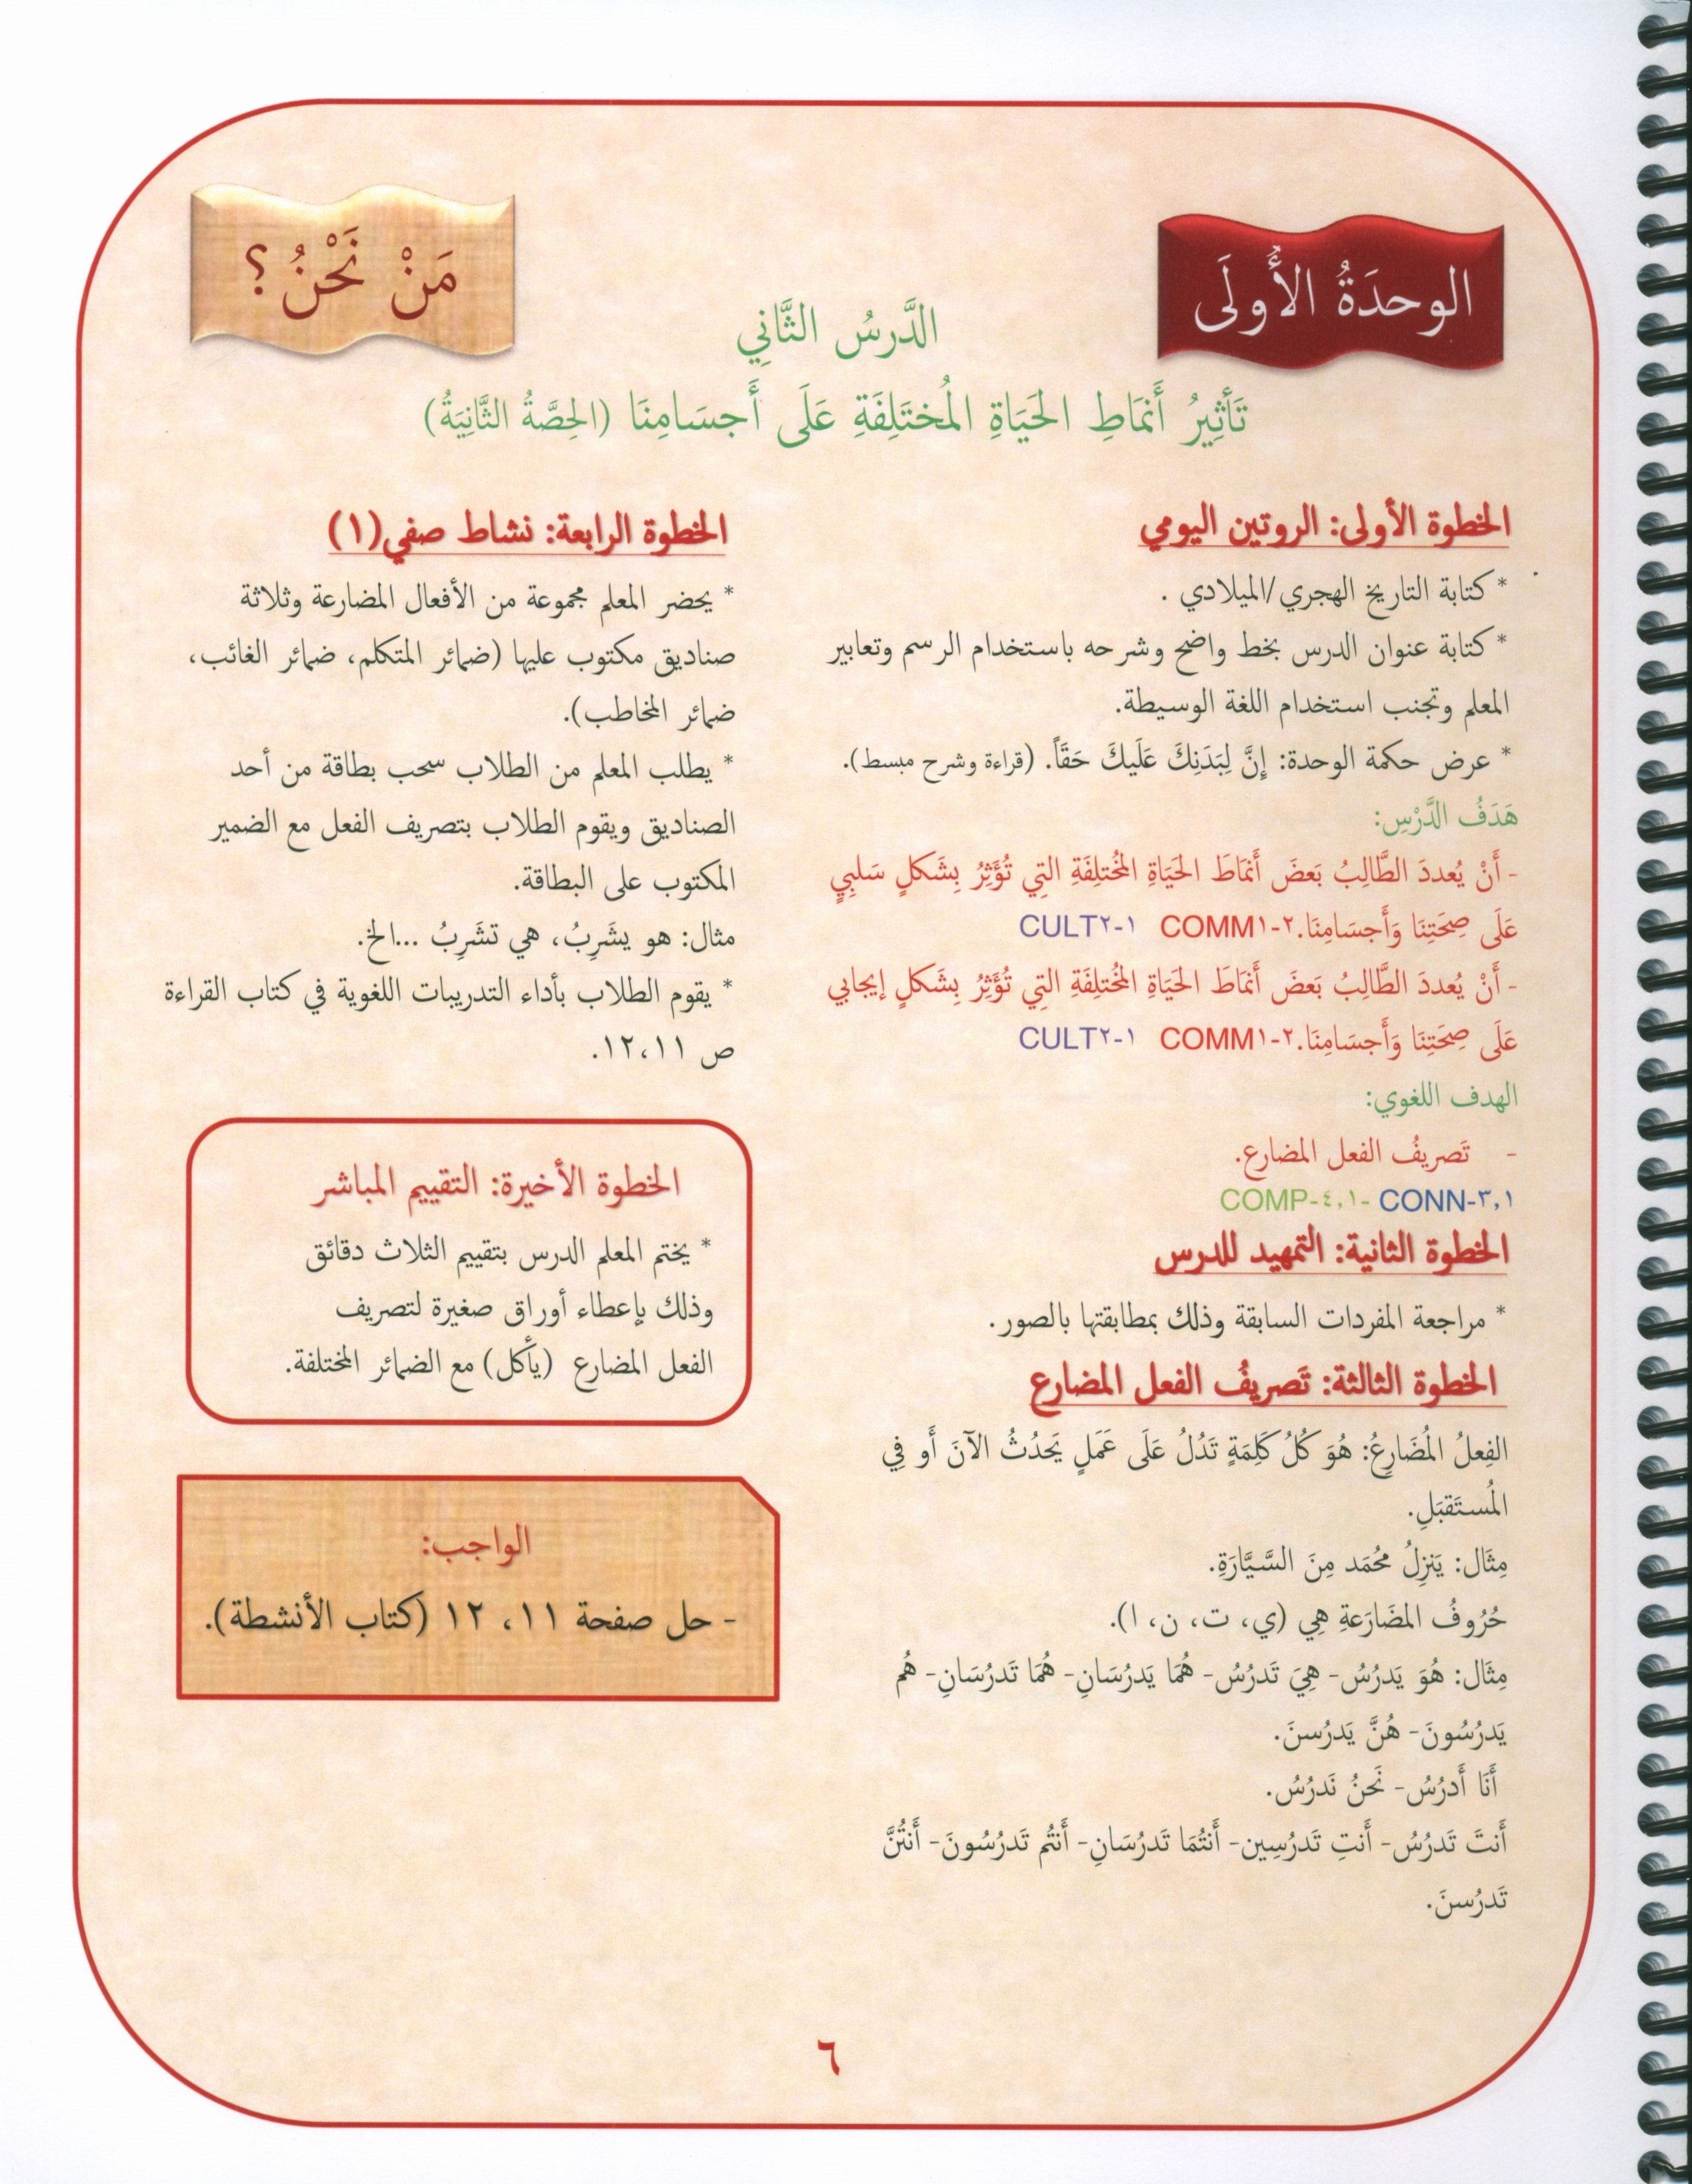 الوحدَةُ الأُولَى
مَنْ نَحْنُ؟
الدَّرسُ الثَّانِي
تَأثِيرُ أَنمَاطِ الحَيَاةِ المُختَلِفَةِ عَلَى أَجسَامِنَا (الحِصَّةُ الثَّانِيَةُ)
الخطوة الأولى: الروتين اليومي
* كتابة التاريخ الهجري/الميلادي .
* كتابة عنوان الدرس بخط واضح وشرحه باستخدام الرسم وتعابير
المعلم وتجنب استخدام اللغة الوسيطة.
* عرض حكمة الوحدة: إِنَّ لِبَدَنِكَ عَلَيكَ حَقَّاً. (قراءة وشرح مبسط).
هَدَفُ الدَّرْسِ:
- أَنْ يُعددَ الطَّالِبُ بَعضَ أَنمَاطَ الحَيَاةِ المُختلِفَةِ التِي تُؤَثِرُ بِشَكلٍ سَلبِيٍ
عَلَى صِحَتِنَا وَأَجسَامِنَا. COMM١-٢ CULT٢-١
- أَنْ يُعددَ الطَّالِبُ بَعضَ أَنمَاطَ الحَيَاةِ المُختلِفَةِ التِي تُؤَثِرُ بِشَكلٍ إيجابي
عَلَى صِحَتِنَا وَأَجسَامِنَا. COMM١-٢ CULT٢-١
الهدف اللغوي:
- تَصريفُ الفعل المضارع.
COMP-٤,١- CONN-٣,١
الخطوة الثانية: التمهيد للدرس
* مراجعة المفردات السابقة وذلك بمطابقتها بالصور.
الخطوة الثالثة: تَصريفُ الفعل المضارع
الفِعلُ المُضَارِعُ: هُوَ كُلُ كَلِمَةٍ تَدُلُ عَلَى عَمَلٍ يَحدُثُ الآنَ أَو فِي
المُستَقبَلِ.
مِثَال: يَنزِلُ مُحُمَد مِنَ السَّيَّارَةِ.
حُرُوفُ المضَارَعةِ هِي (ي، ت، ن، ا).
مِثَال: هُوَ يَدرُسُ- هِيَ تَدرُسُ- هُمَا يَدرُسَانِ- هُمَا تَدرُسَانِ- هُم
يَدرُسُونَ- هُنَّ يَدرُسنَ.
أَنَا أَدرُسُ- نَحنُ نَدرُسُ.
أَنتَ تَدرُسُ- أَنتِ تَدرُسِين- أَنتُمَا تَدرُسَانِ- أَنتُم تَدرُسُونَ- أَنتُنَّ
تَدرُسنَ.
الخطوة الرابعة: نشاط صفي(١)
* يحضر المعلم مجموعة من الأفعال المضارعة وثلاثة
صناديق مكتوب عليها (ضمائر المتكلم، ضمائر الغائب،
ضمائر المخاطب).
* يطلب المعلم من الطلاب سحب بطاقة من أحد
الصناديق ويقوم الطلاب بتصريف الفعل مع الضمير
المكتوب على البطاقة.
مثال: هو يشَرِبُ، هي تشَرِبُ ...الخ.
* يقوم الطلاب بأداء التدريبات اللغوية في كتاب القراءة
ص ١٢،١١.
الخطوة الأخيرة: التقييم المباشر
* يختم المعلم الدرس بتقييم الثلاث دقائق
وذلك بإعطاء أوراق صغيرة لتصريف
الفعل المضارع (يأكل) مع الضمائر المختلفة.
الواجب:
- حل صفحة ١١، ١٢ (كتاب الأنشطة).
٦